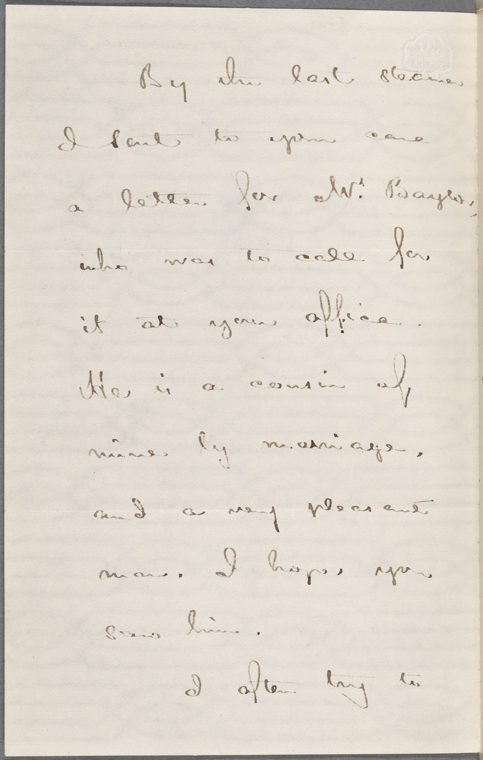 By the last steamer
I sent to your care
a letter for Mr. Baylor,
who was to call for
it at your office.
He is a cousin of
mine by marriage,
and a very pleasant
man. I hope, you
saw him.
I often try to